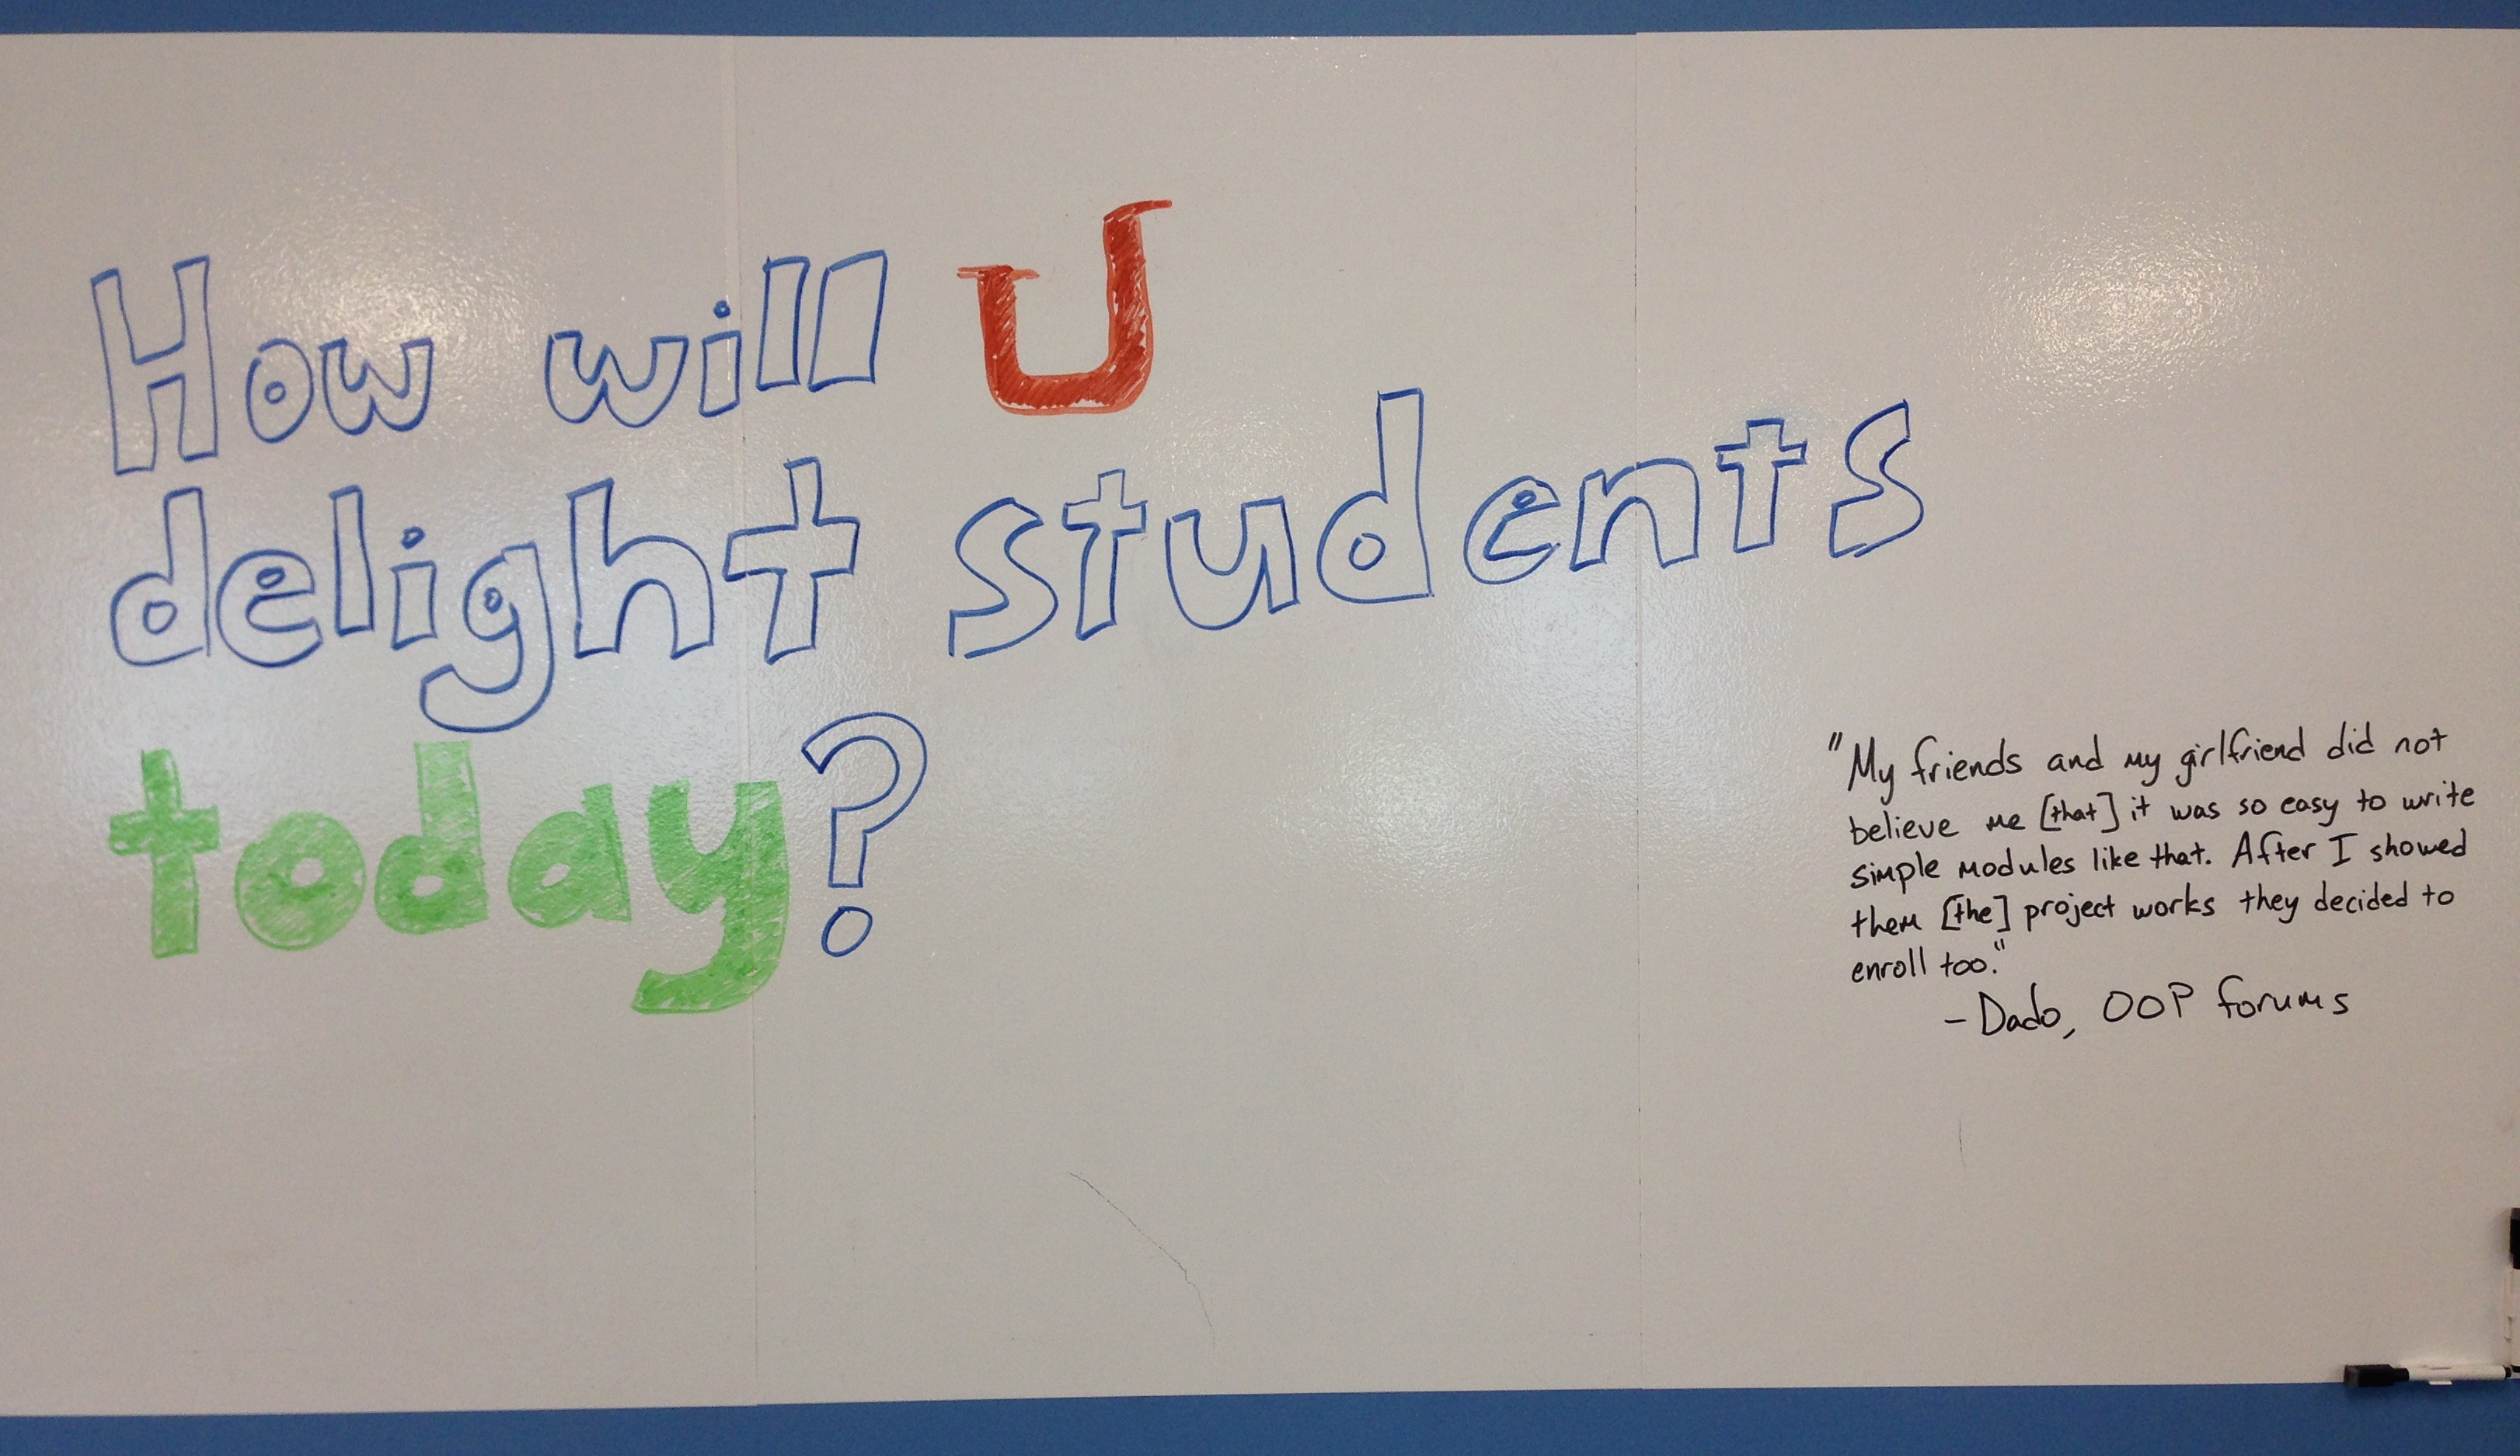 How will U
delight students
today?
"My friends and my girlfriend did not
believe me [that] it was so easy to write
simple modules like that. After I showed
them [the] project works they decided to
enroll too."
- Dado, OOP forums